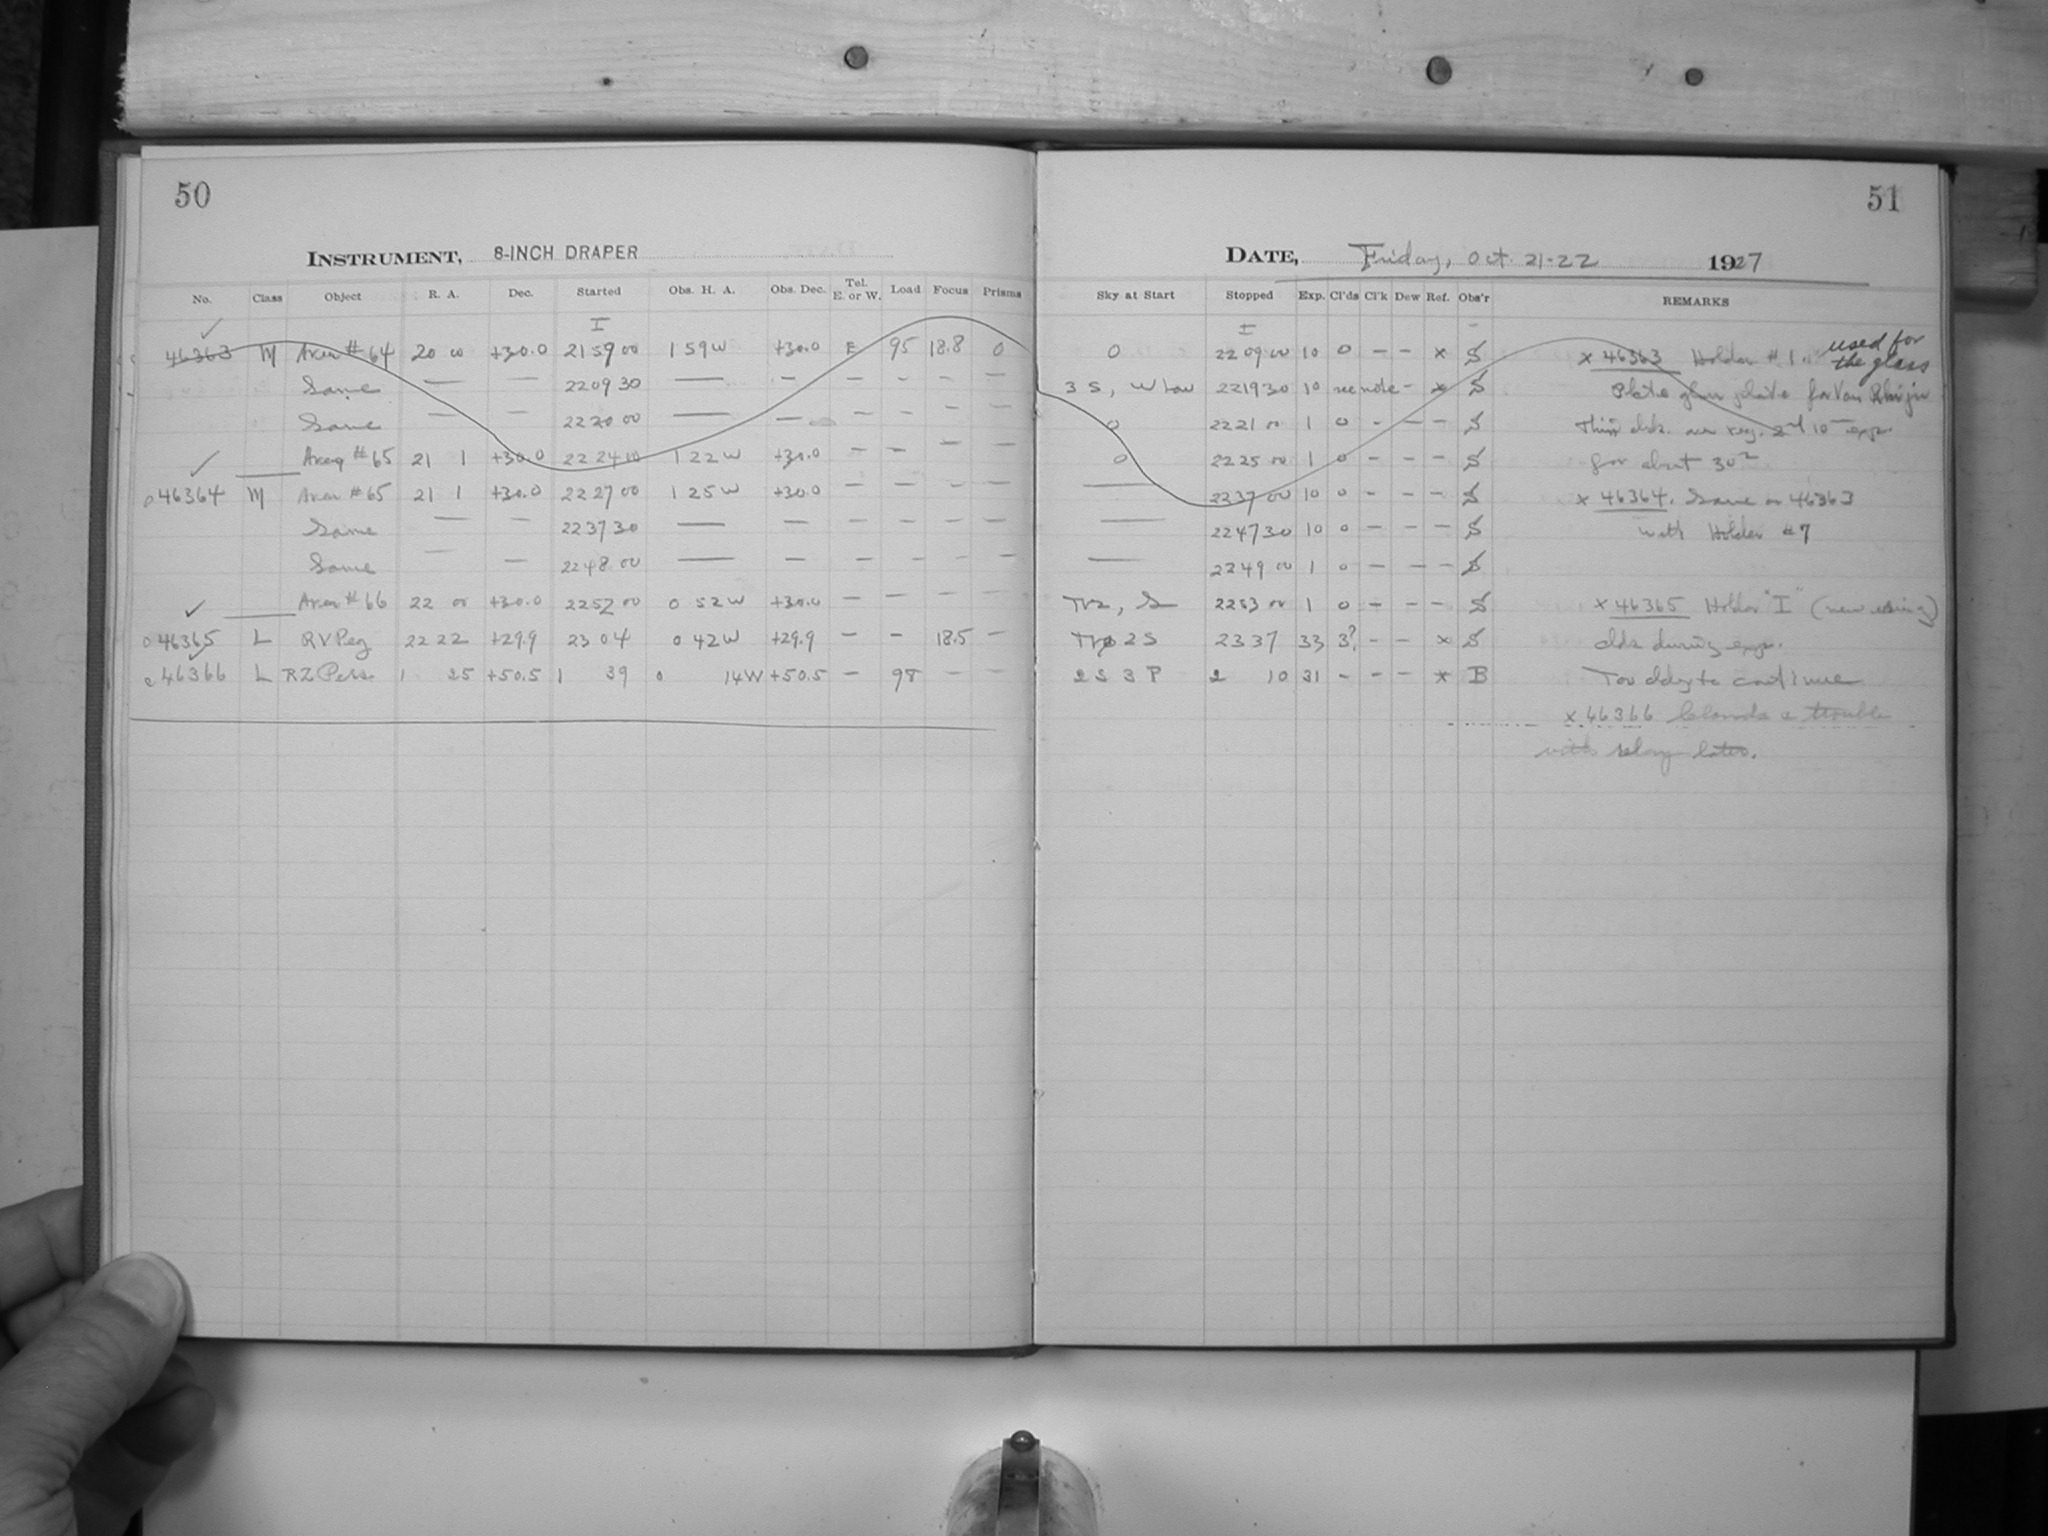 50
INSTRUMENT, 8-INCH DRAPER
No. Class Object R. A. Dec. Started Obs. H. A. Obs. Dec. Tel. E. or W. Load Focus Prisms
I
46363 M Area #64 20 00 +30.0 21 59 00 1 59 W +30.0 E 95 18.8 0
Same — — 22 09 30 — — — — — —
Same — — 22 20 00 — — — — — —
Area #65 21 1 +30.0 22 24 00 1 22 W +30.0 — —
46364 M Area #65 21 1 +30.0 22 27 00 1 25 W +30.0 — — — —
Same — — 22 37 30 — — — — — —
Same — — 22 48 00 — — — — — —
Area #66 22 00 +30.0 22 52 00 0 52 W +30.0 — — — —
46365 L RV Peg 22 22 +29.9 23 04 0 42 W +29.9 — — 18.5 —
46366 L RZ Pers 1 25 +50.5 1 39 0 14 W +50.5 — 98 — —
51
DATE, Friday, Oct 21-22 1927
Sky at Start Stopped Exp. Cl'ds Cl'k Dew Ref. Obs'r REMARKS
I
0 22 09 00 10 0 — — x S x 46363 Holder #1 used for the glass
3 S, W low 22 19 30 10 see note — x S Plate glass plate for Van Rhijn
0 22 21 00 1 0 — — — S Thin clds. over reg. 2nd 10 exp.
0 22 25 00 1 0 — — — S for about 30
— 22 37 00 10 0 — — — S x 46364. Same as 46363
— 22 47 30 10 0 — — — S with Holder #7
— 22 49 00 1 0 — — — S
2, S 22 53 00 1 0 — — — S x 46365 Holder "I" (new
2 S 23 37 33 3? — — x S clds during exp.
2 S 3 P 2 10 31 — — — * B Too cldy to continue
x 46366 Clouds & trouble
with relay later.